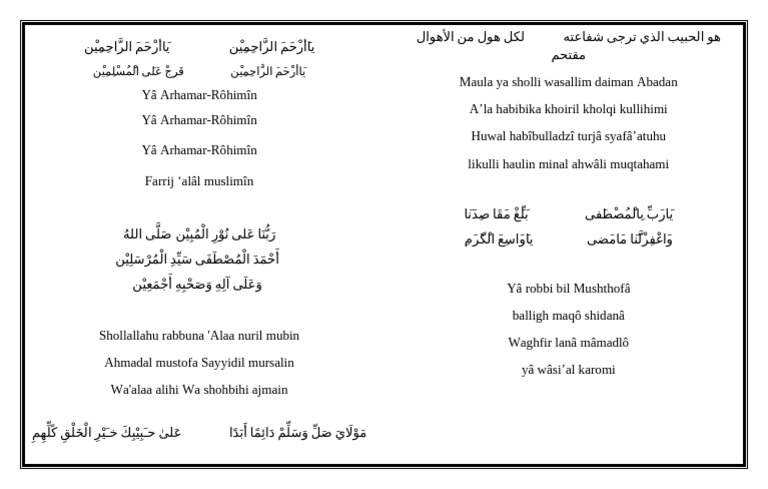 يَاأَرْحَمَ الرَّاحِمِيْن يَاأرْحَمَ الرَّاحِمِيْن
يَاأرْحَمَ الرَّاحِمِيْن فَرِجْ عَلَى الْمُسْلِمِيْن
Yâ Arhamar-Rôhimîn
Yâ Arhamar-Rôhimîn
Yâ Arhamar-Rôhimîn
Farrij ‘alâl muslimîn
رَبُّنَا عَلى نُوْرِ الْمُبِيْن صَلَّى اللهُ
أَحْمَدَ الْمُصْطَفَى سَيِّدِ الْمُرْسَلِيْن
وَعَلَى آلِهِ وَصَحْبِهِ أَجْمَعِيْن
Shollallahu rabbuna 'Alaa nuril mubin
Ahmadal mustofa Sayyidil mursalin
Wa'alaa alihi Wa shohbihi ajmain
مَوْلَايَ صَلِّ وَسَلِّمْ دَائِمًا أَبَدًا عَلىٰ حَبِيْبِكَ خَيْرِ الْخَلْقِ كُلِّهِمِ
هو الحبيب الذي ترجى شفاعته لكل هول من الأهوال
مقتحم
Maula ya sholli wasallim daiman Abadan
A’la habibika khoiril kholqi kullihimi
Huwal habîbulladzî turjâ syafâ’atuhu
likulli haulin minal ahwâli muqtahami
يَارَبِّ بِالْمُصْطَفى بَلِّغْ مَقَا صِدَنَا
وَاغْفِرْلَنَا مَامَضى يَاوَاسِعَ الْكَرَمِ
Yâ robbi bil Mushthofâ
balligh maqô shidanâ
Waghfir lanâ mâmadlô
yâ wâsi’al karomi